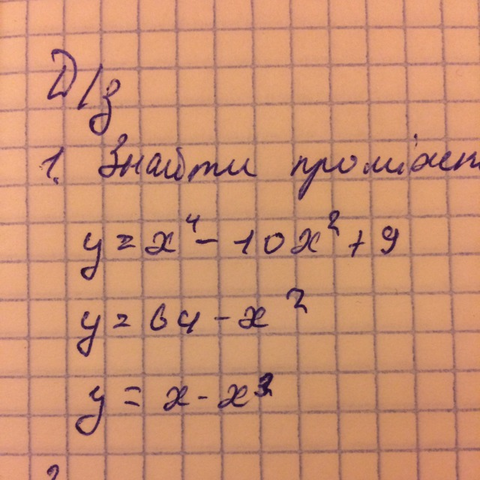 Д/з
1. Знайти проміжт
y = x⁴ - 10x² + 9
y = 64 - x²
y = x - x³